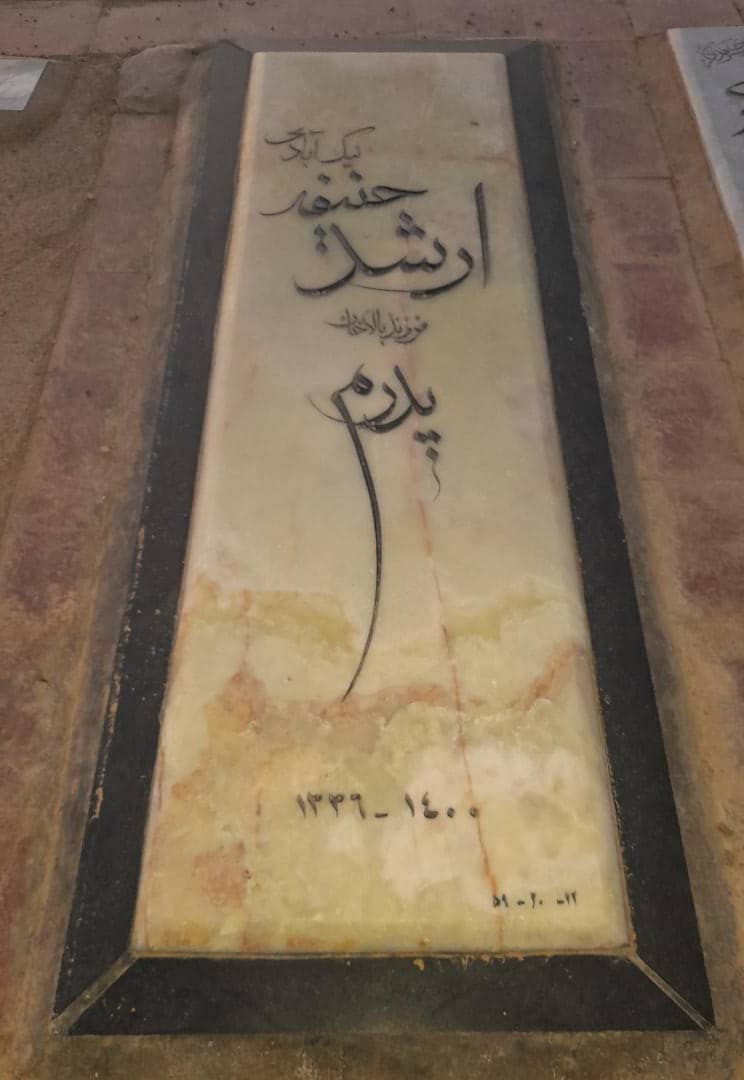 نیک آبادی
حنیفه
ارشد
فرزند بالاخان
پدرم
۱۳۳۶ - ۱۴۰۰
۵۹ - ۲۰ - ۱۲